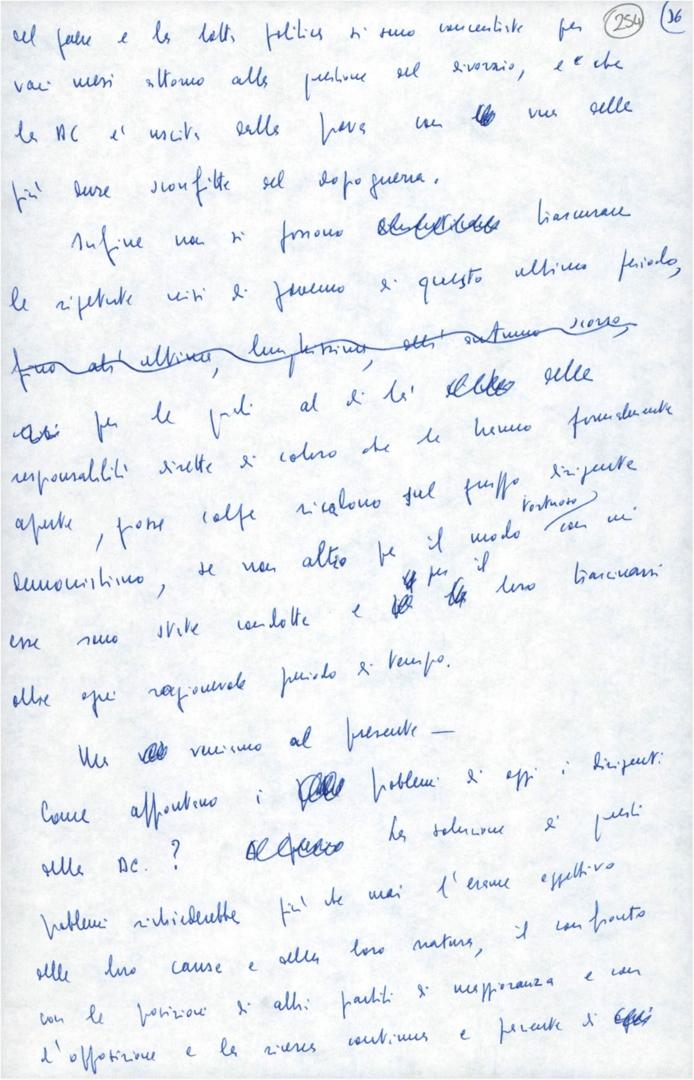 254 36
del paese e la lotta politica si sono concentrate per
vari mesi attorno alla questione del divorzio, e che
la DC e' uscita dalla prova con una delle
piu' dure sconfitte del dopoguerra.
Infine non si possono trascurare
le ripetute crisi di governo di questo ultimo periodo,
fino all'ultima, lunghissima, dell'autunno scorso,
per le quali al di la' delle
responsabilità dirette di coloro che le hanno formalmente
aperte, grosse colpe ricadono sul gruppo dirigente
democristiano, se non altro per il modo tortuoso con cui
esse sono state condotte e per il loro trascinarsi
oltre ogni ragionevole periodo di tempo.
Ma veniamo al presente —
Come affrontano i problemi di oggi i dirigenti
della DC.? La soluzione di questi
problemi richiederebbe piu' che mai l'esame oggettivo
delle loro cause e della loro natura, il confronto
con le posizioni di altri partiti di maggioranza e con
l'opposizione e la ricerca continua e paziente di